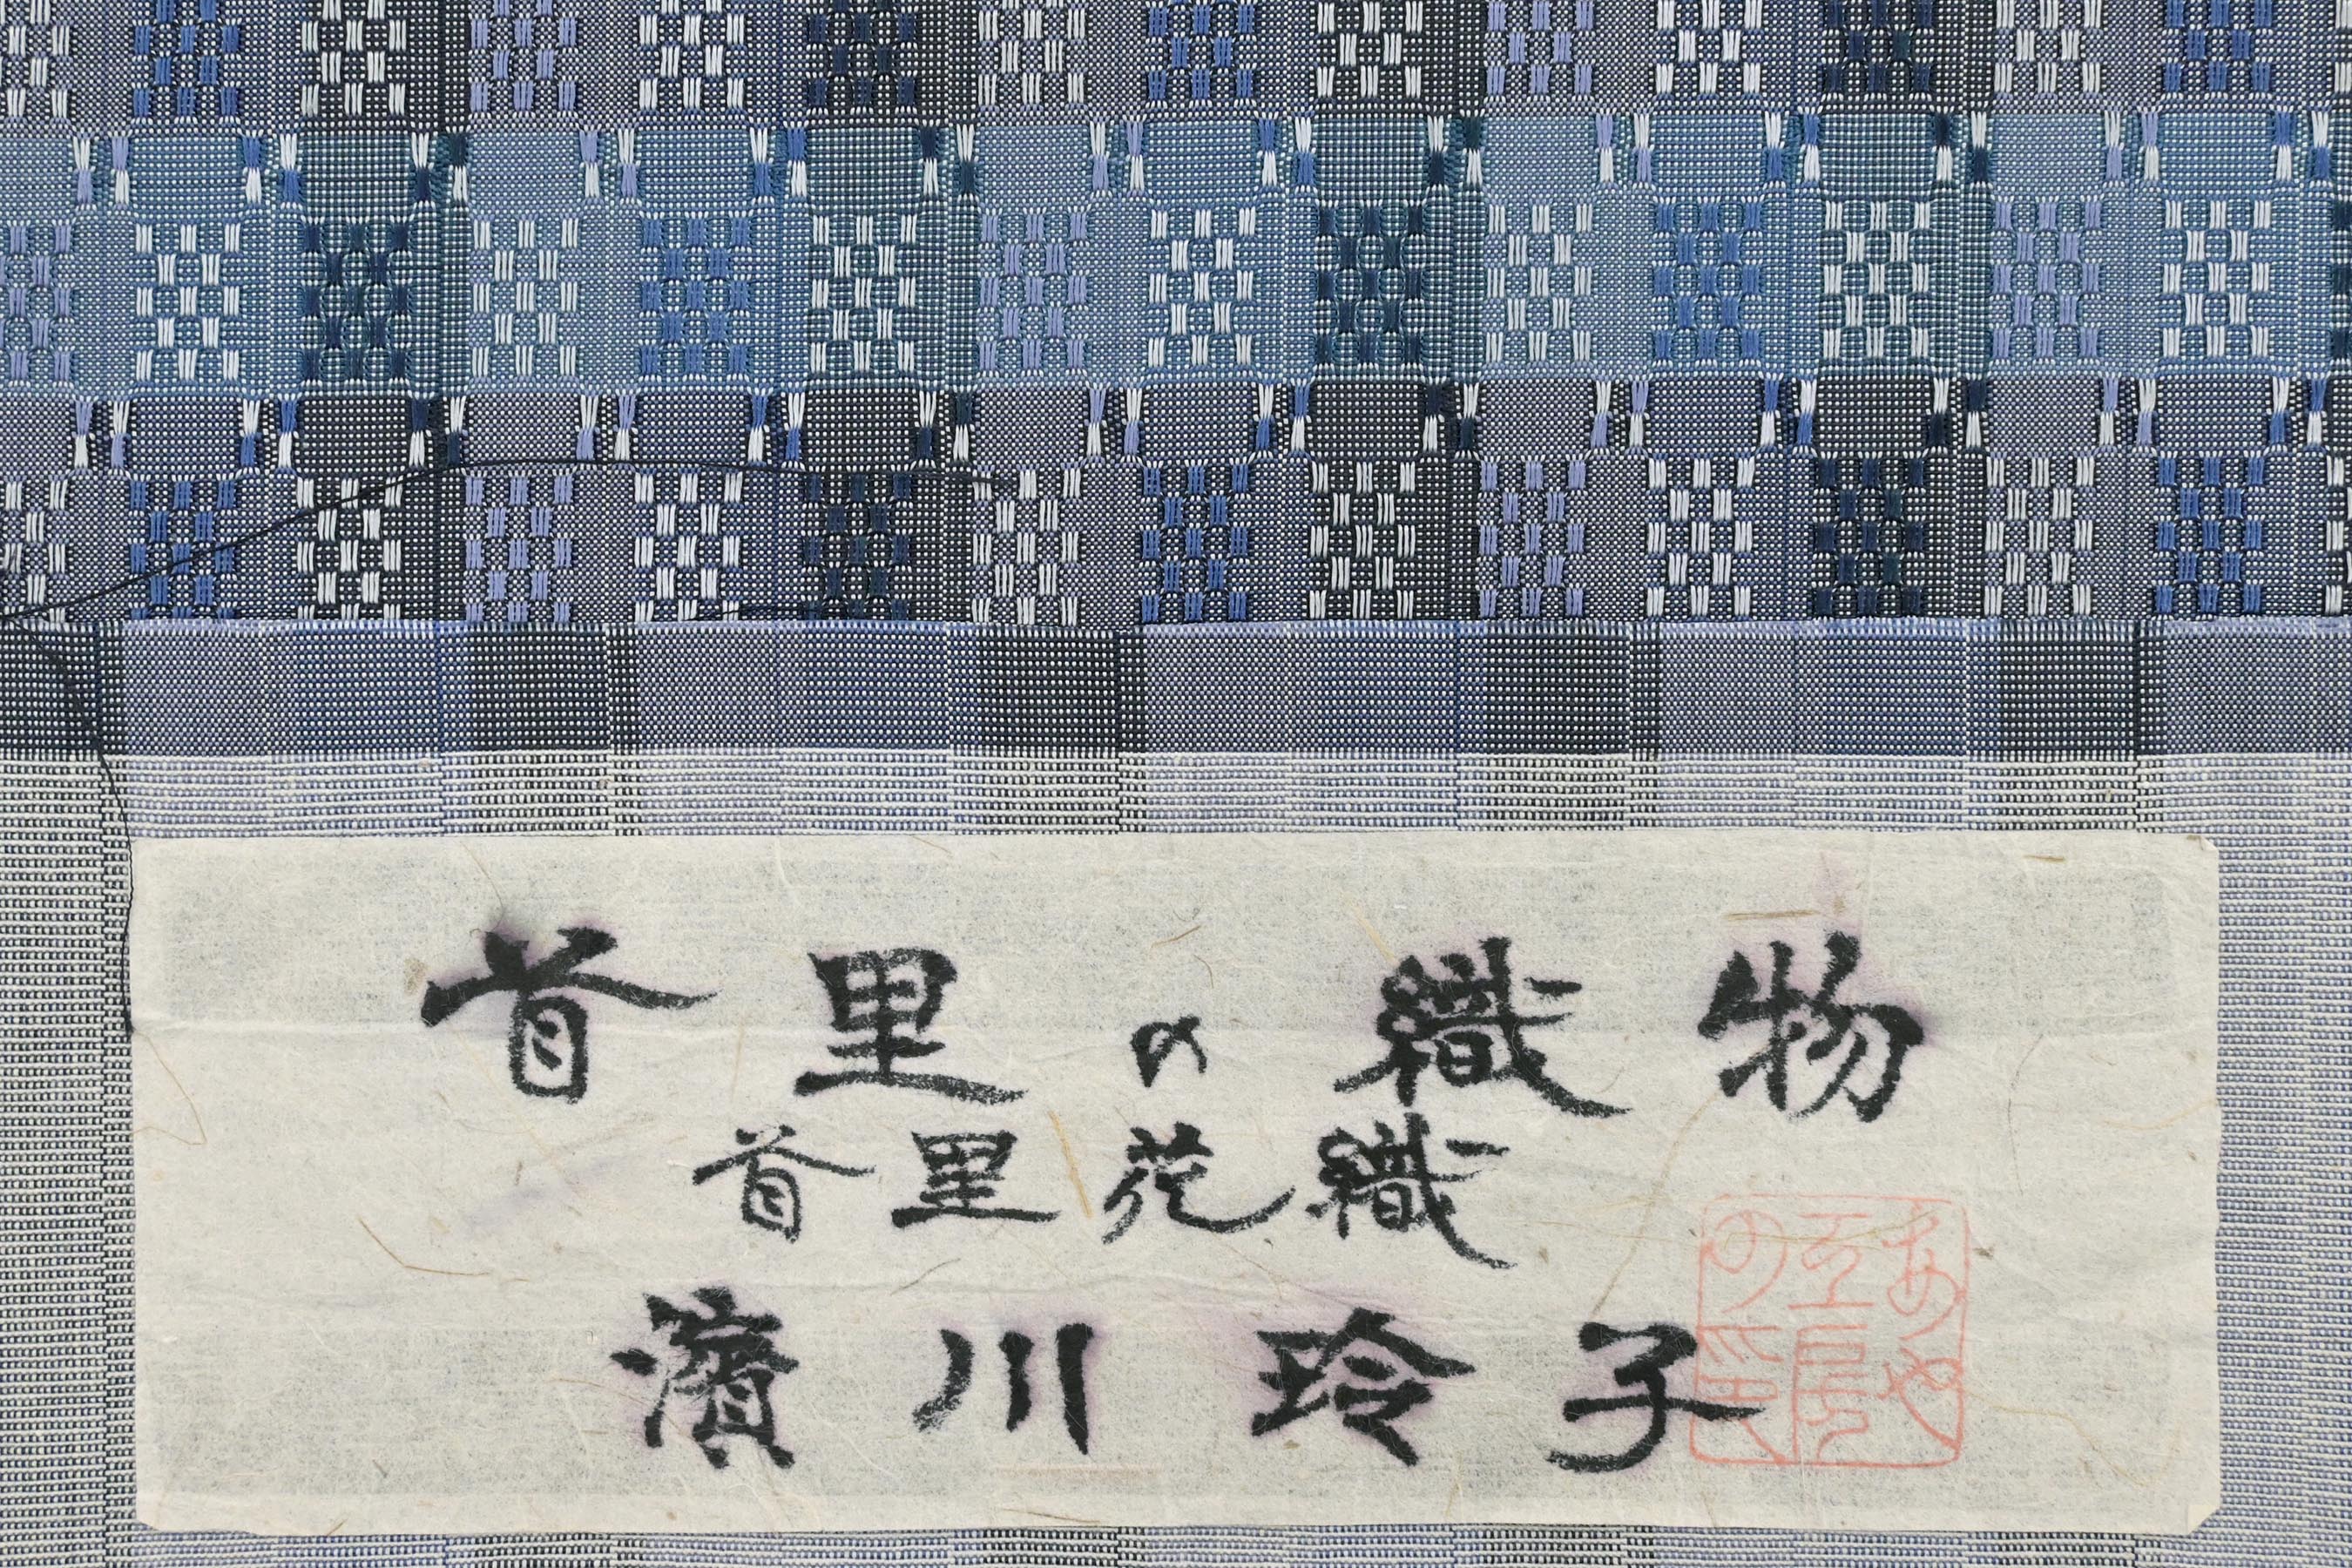 首里の織物
首里花織
濱川玲子